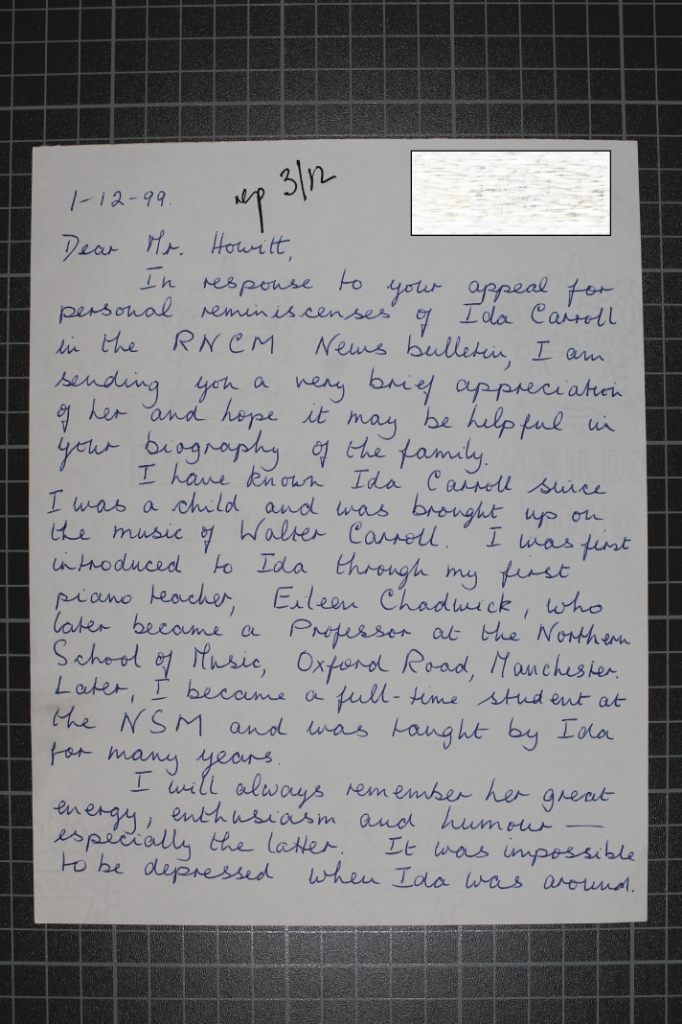 1-12-99.
rep 3/12
Dear Mr. Howitt,
In response to your appeal for
personal reminiscenses of Ida Carroll
in the RNCM News bulletin, I am
sending you a very brief appreciation
of her and hope it may be helpful in
your biography of the family.
I have known Ida Carroll since
I was a child and was brought up on
the music of Walter Carroll. I was first
introduced to Ida through my first
piano teacher, Eileen Chadwick, who
later became a Professor at the Northern
School of Music, Oxford Road, Manchester.
Later, I became a full-time student at
the NSM and was taught by Ida
for many years.
I will always remember her great
energy, enthusiasm and humour —
especially the latter. It was impossible
to be depressed when Ida was around.